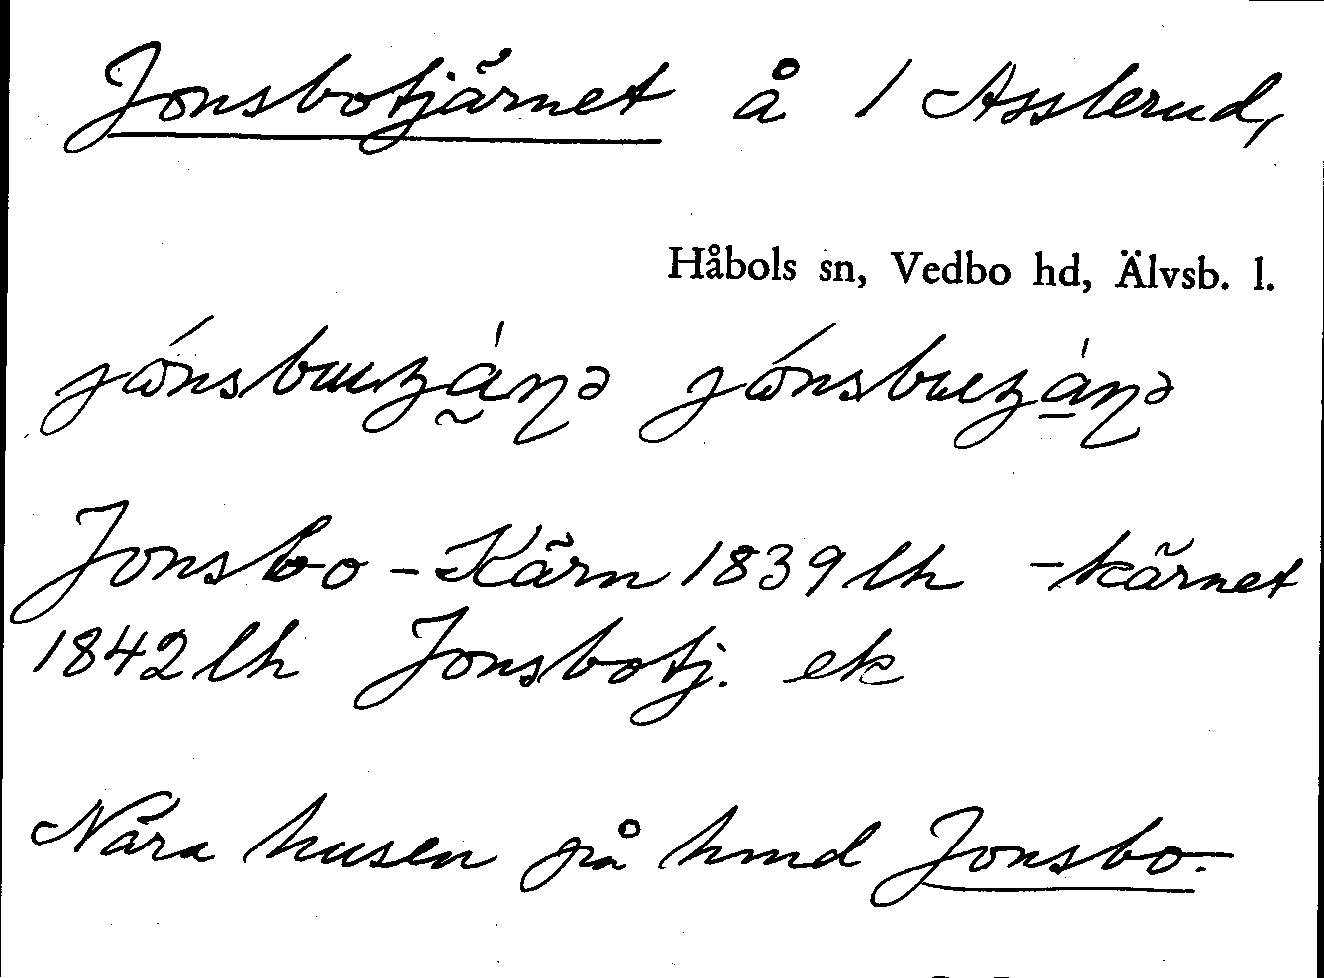 Jonsbotjärnet å 1 Asslerud,
Håbols sn, Vedbo hd, Älvsb. l.
Jonsbo-Kärn 1839 lh -kärnet
1842 lh Jonsbotj. ek
Nära husen på hmd Jonsbo.